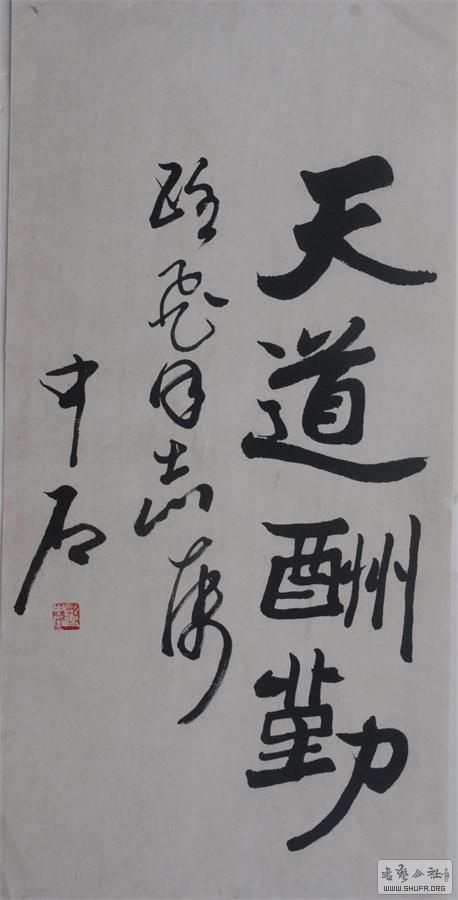 天道酬勤
飛同志属
中石
書藝公社
WWW.SHUFA.ORG